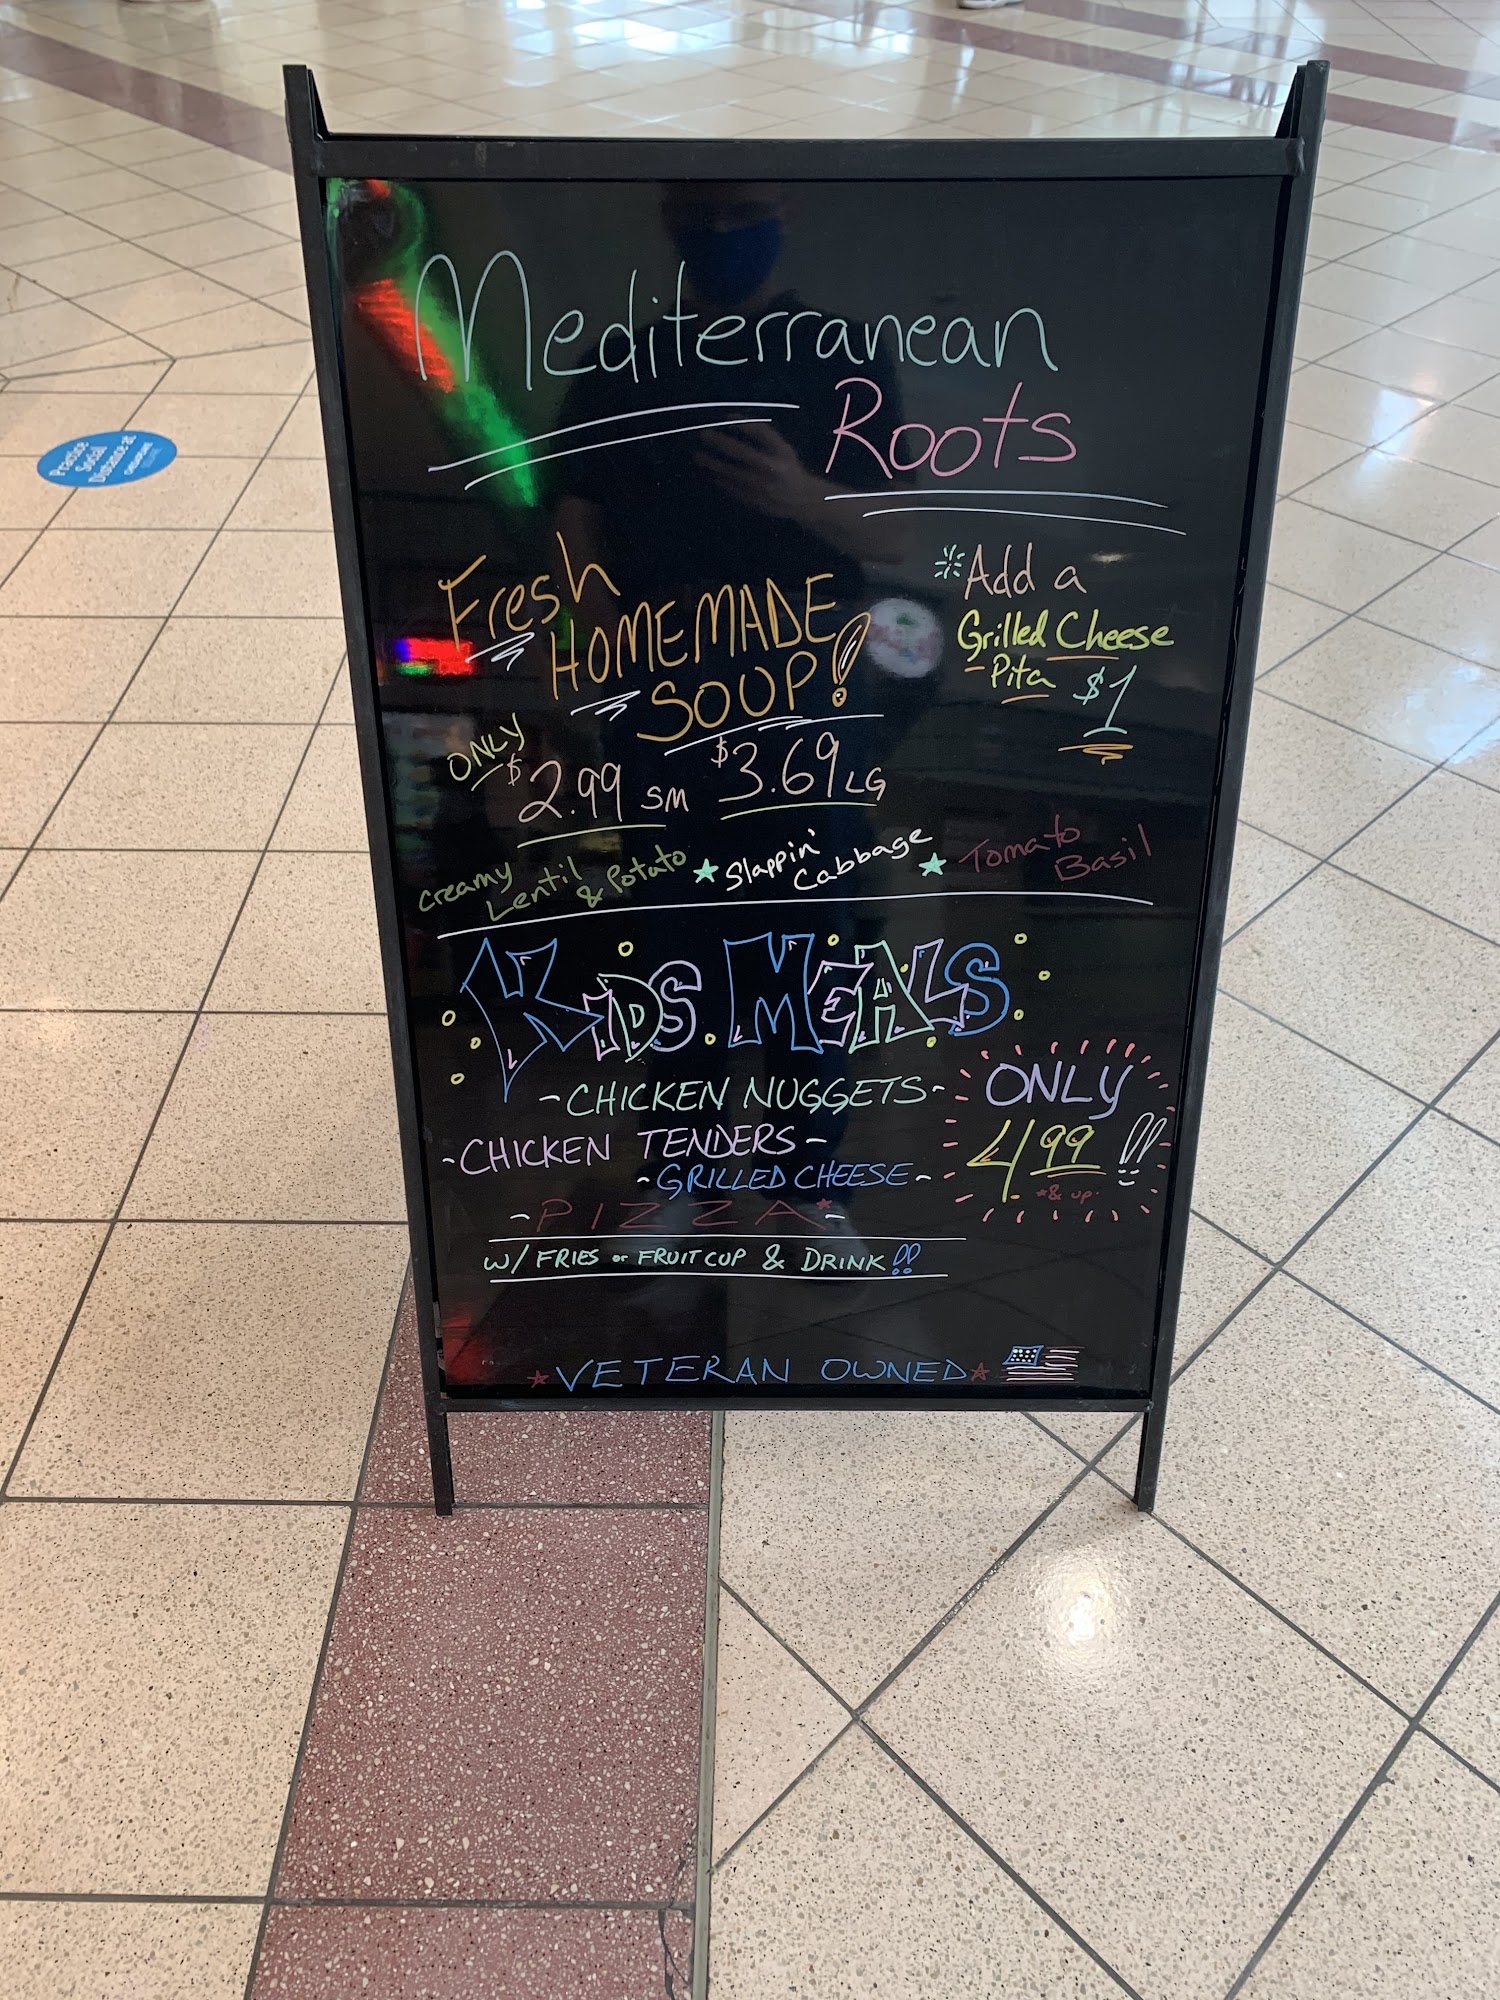 Mediterranean
Roots
Fresh
HOMEMADE
SOUP!
ONLY
$2.99 SM $3.69 LG
Add a
Grilled Cheese
Pita $1
creamy
Lentil
& Potato
Slappin'
Cabbage
Tomato
Basil
KIDS MEALS
~CHICKEN NUGGETS~
~CHICKEN TENDERS~
~GRILLED CHEESE~
~PIZZA*~
W/ FRIES or FRUIT CUP & DRINK!!
ONLY
4.99!!
*& up.
VETERAN OWNED
Practice
Social
Distance at